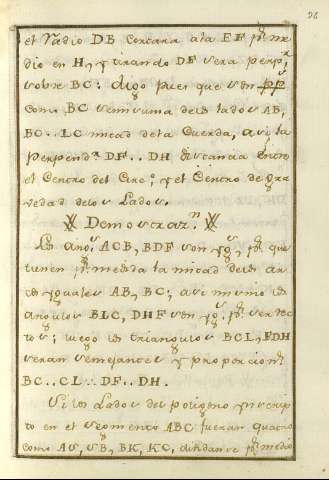 28
el Radio DB cortara a la EF pr. me
dio en H, y tirando DF sera perp.r
sobre BC: digo pues que son pp.s
como BC semisuma de los lados AB,
BC.. LC mitad de la Cuerda, asi la
perpend.r DF.. DH distancia entre
el Centro del Circ.o; y el Centro de gra
vedad de los Lados.
Demostraz.n
Los ang.s ACB, BDF son yg.s pr. que
tienen pr. medida la mitad de los ar
cos yguales AB, BC; asi mismo los
angulos BLC, DHF son yg.s pr. ser rec
tos; luego los triangulos BCL, FDH
seran semejantes y proporcion.s
BC.. CL:: DF.. DH.
Si los Lados del poligono ynscrip
to en el segmento ABC fueran quatro
como AS, SB, BK, KC, dibidanse pr. medio